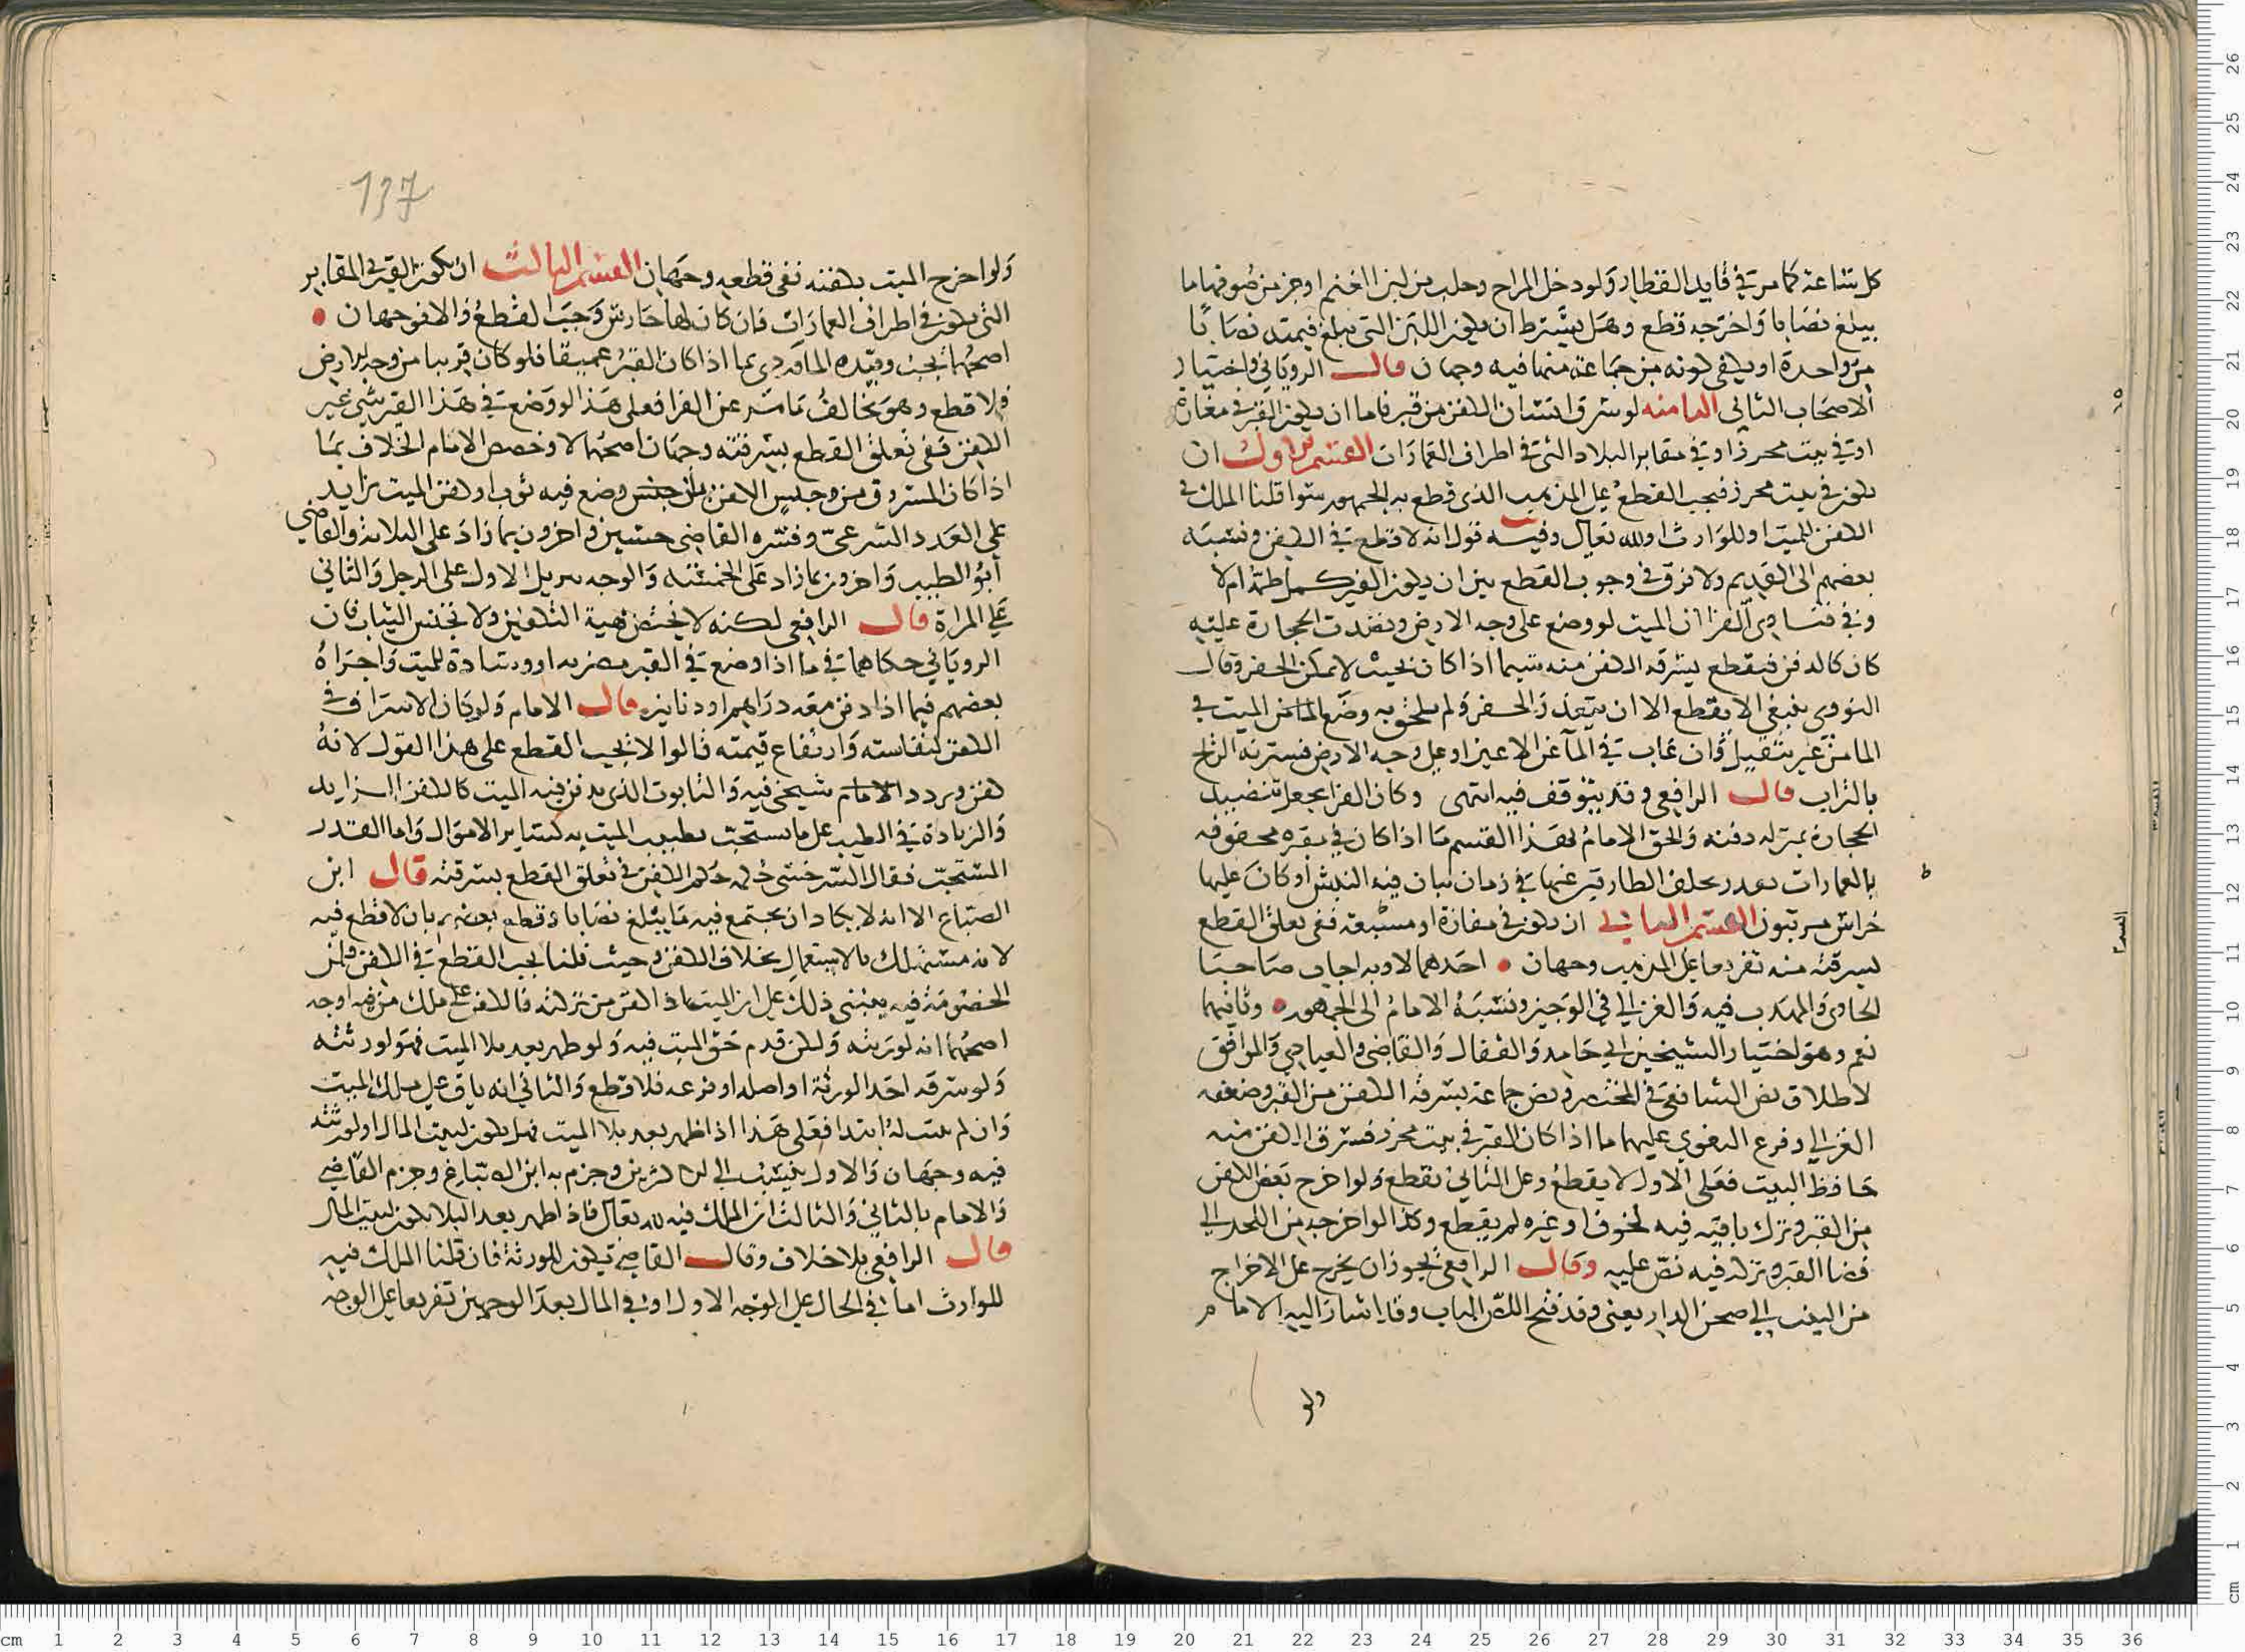 كل ساعة كما مر في قايد القطار ولو دخل المراح وحلب من لبن الغنم او جز من صوفها ما
يبلغ نصابا واخرجه قطع وهل يشترط ان يكون اللبن التي يبلغ قيمته نصابا
من واحدة او يكفي كونه من جماعة منها فيه وجهان قال الروياني واختيار
الاصحاب الثاني الثامنه لو سرق انسان الكفن من قبر فاما ان يكون القبر في مغارة
او في بيت محرز او في مقابر البلاد التي في اطراف العمارات القسم الاول ان
يكون في بيت محرز فيجب القطع على المذهب الذي قطع به الجمهور سوا قلنا الملك في
الكفن للميت او للوارث او لله تعالى وفيه قول انه لا قطع في الكفن ونسبه
بعضهم الى القديم ولا فرق في وجوب القطع بين ان يكون القبر كـ ام لا
وفي فتاوى الفرا ان الميت لو وضع على وجه الارض ونضدت الحجارة عليه
كان كالدفن فيقطع بسرقه الكفن منه سيما اذا كان بحيث لا يمكن الحفر وقال
النووي ينبغي الا يقطع الا ان يتعذر الحفر ولم يلحق به وضع الميت في
الما من غير تثقيل وان غاب في الما عن الاعين او على وجه الارض فسترته الريح
بالتراب قال الرافعي وقد يتوقف فيه انتهى وكان الفرا يجعل تنضيد
الحجارة بمنزله دفنه والحق الامام بهذا القسم ما اذا كان في مقبره محفوفه
بالعمارات يعدر تخلف الطارقين عنها في زمان يبان فيه النبش او كان عليها
حراس مرتبون القسم الثاني ان يكون في مفازة او مسبعة ففي تعلق القطع
بسرقته منه تفريعا على المذهب وجهان احدهما لا وبه اجاب صاحبا
الحاوي والمهذب فيه والغزالي في الوجيز ونسبه الامام الى الجمهور وثانيهما
نعم وهو اختيار الشيخين ابي حامد والقفال والقاضي والعبادي والموافق
لاطلاق نص الشافعي في المختصر ونص جماعة بسرقه الكفن من القبر وضعفه
الغزالي وفرع البغوي عليهما ما اذا كان القبر في بيت محرز فسرق الكفن منه
حافظ البيت فعلى الاول لا يقطع وعلى الثاني يقطع ولو اخرج بعض الكفن
من القبر وترك باقيه فيه لخوف او غيره لم يقطع وكذا لو اخرجه من اللحد الى
فضا القبر وتركه فيه نص عليه وقال الرافعي يجوز ان يخرج على الاخراج
من البيت الى صحن الدار يعني وقد فتح الباب وقد اشار اليه الامام
ولو
137
ولو اخرج الميت بكفنه ففي قطعه وجهان القسم الثالث ان يكون القبر في المقابر
التي تكون في اطراف العمارات فان كان لها حارس وجب القطع والا فوجهان
اصحهما يجب وقيده الماوردي بما اذا كان القبر عميقا فلو كان قريبا من وجه الارض
فلا قطع وهو يخالف ما مر عن الفرا فعلى هذا لو وضع في هذا القبر شي غير
الكفن ففي تعلق القطع بسرقته وجهان اصحهما لا وخصص الامام الخلاف بما
اذا كان المسروق من جنس الكفن بان وضع فيه ثوب او كفن الميت بزايد
على العدد الشرعي وفسره القاضي حسين واخرون بما زاد على الثلاثة والقاضي
ابو الطيب واخرون بما زاد على الخمسة والوجه تنزيل الاول على الرجل والثاني
على المراة قال الرافعي لكنه لا يختص بهية التكفين ولا بجنس الثياب فان
الروياني حكاهما في ما اذا وضع في القبر مضربه او وسادة للميت واجراه
بعضهم فيما اذا دفن معه دراهم او دنانير قال الامام ولو كان الاسراف في
الكفن لنفاسته وارتفاع قيمته قالوا لا يجب القطع على هذا القول لانه
كفن وردد الامام شيخي فيه والتابوت الذي يدفن فيه الميت كالكفن الزايد
والزيادة في الطيب على ما يستحب تطييب الميت به كساير الاموال واما القدر
المستحب فقال السرخسي حكمه حكم الكفن في تعلق القطع بسرقته قال ابن
الصباغ الا انه لا يكاد ان يجتمع فيه ما يبلغ نصابا وقطع بعضهم بان لا قطع فيه
لانه مستهلك بالاستعمال بخلاف الكفن وحيث قلنا يجب القطع في الكفن فمن
الخصومة فيه يبتني ذلك على ان الميت اذا كفن من تركته فالكفن على ملك من فيه اوجه
اصحها انه لورثته ولكن قدم حق الميت فيه ولو ظهر بعد بلا الميت فهو لورثته
ولو سرقه احد الورثة او اصله او فرعه فلا قطع والثاني انه باق على ملك الميت
وان لم يثبت له ابتدا فعلى هذا اذا ظهر بعد بلا الميت فهل يكون لبيت المال او لورثته
فيه وجهان والاول ينسب الى الاكثرين وجزم به ابن الصباغ وجزم القاضي
والامام بالثاني والثالث ان الملك فيه لله تعالى فاذا ظهر بعد البلا يكون لبيت المال
قال الرافعي بلا خلاف وقال القاضي تكون للورثة فان قلنا الملك فيه
للوارث اما في الحال على الوجه الاول او في المال بعد الوجهين تفريعا على الوجه